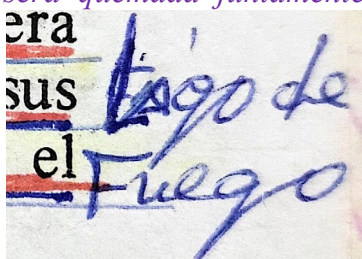 será quemada juntamente
era
sus Lago de
el Fuego